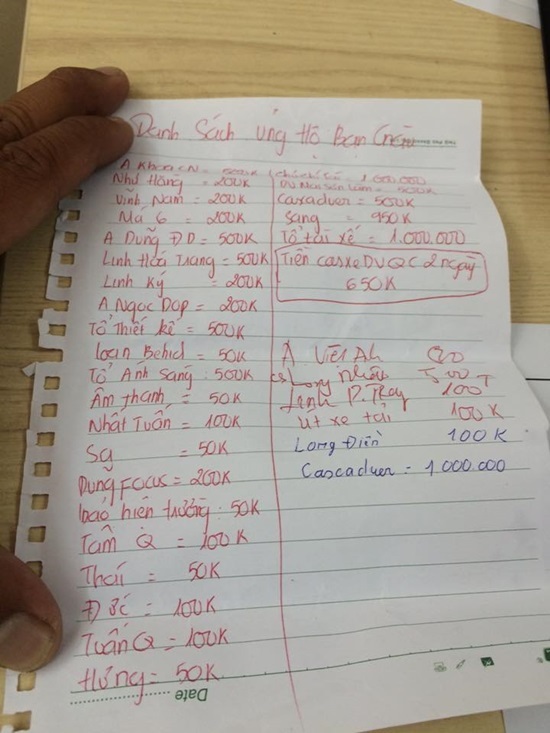 Danh Sách Ủng Hộ Bạn
A Khoa CN = 500K
Như Hằng = 200K
Vĩnh Nam = 200K
Mã 6 = 200K
A Dũng ĐD = 500K
Linh Hóa Trang = 500K
Linh Ký = 200K
A. Ngọc Dop = 200K
Tổ Thiết kế = 500K
loan Behid = 50K
Tổ Anh Sáng : 500K
Âm thanh = 50K
Nhất Tuấn = 100K
Sg = 50K
Dung Focus = 200K
bảo hiện trường : 50K
Tâm Q = 100K
Thái = 50K
Đức = 100K
Tuấn Q = 100K
Hưng = 50K
1.000.000
= 500K
Caxaduer = 500K
Sang = 950K
Tổ tài xế = 1.000.000
Tiền casxe DV QC 2 ngày
650K
A. Việt Ah
Long Nhẫn 500
Lệnh P. Thay 100T
Út xe tải 100K
Long Điền 100K
Cascaduer = 1.000.000
Date